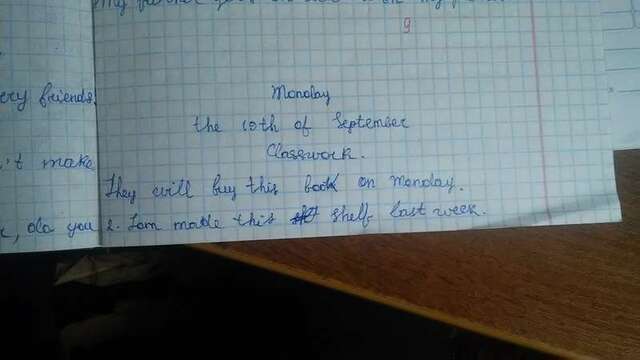 9
Monday
the 10th of September
Classwork.
ery friends.
't make
They will buy this book on Monday.
, do you
2. Tom made this shelf last week.